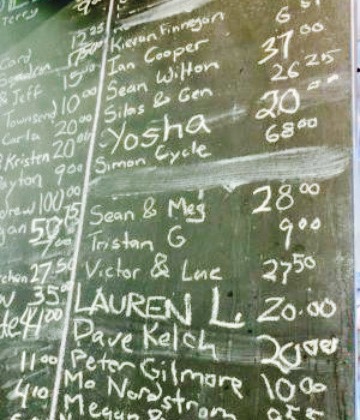 Terry 9
Card 12.25
17.50
& Jeff 15.00
Townsend 10.00
Carla 20.00
Kristen 20.00
ayton 9.00
drew 100.00
50.75
27.50
35.00
41.00
11.00
4.10
Kieran Finnegan
Ian Cooper 37.00
Sean Wilton 26.25
Silas & Gen 20.00
Yosha 68.00
Simon Cycle
Sean & Meg 28.00
Tristan G 9.00
Victor & Luc 27.50
LAUREN L. 20.00
Dave Kelch 20.00
Peter Gilmore 10.00
Mo Nordstrom
Megan &